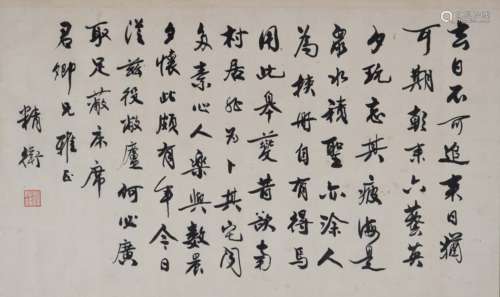 去日不可追來日猶
可期朝采六藝英
夕玩忘其疲海是
眾水積聖亦涂人
為挾冊自有得焉
用此舉昔欲南
村居非為卜其宅聞
多素心人樂與數晨
夕懷此頗有年今日
從茲役敝廬何必廣
取足蔽床席
君卿兄雅正
精衛